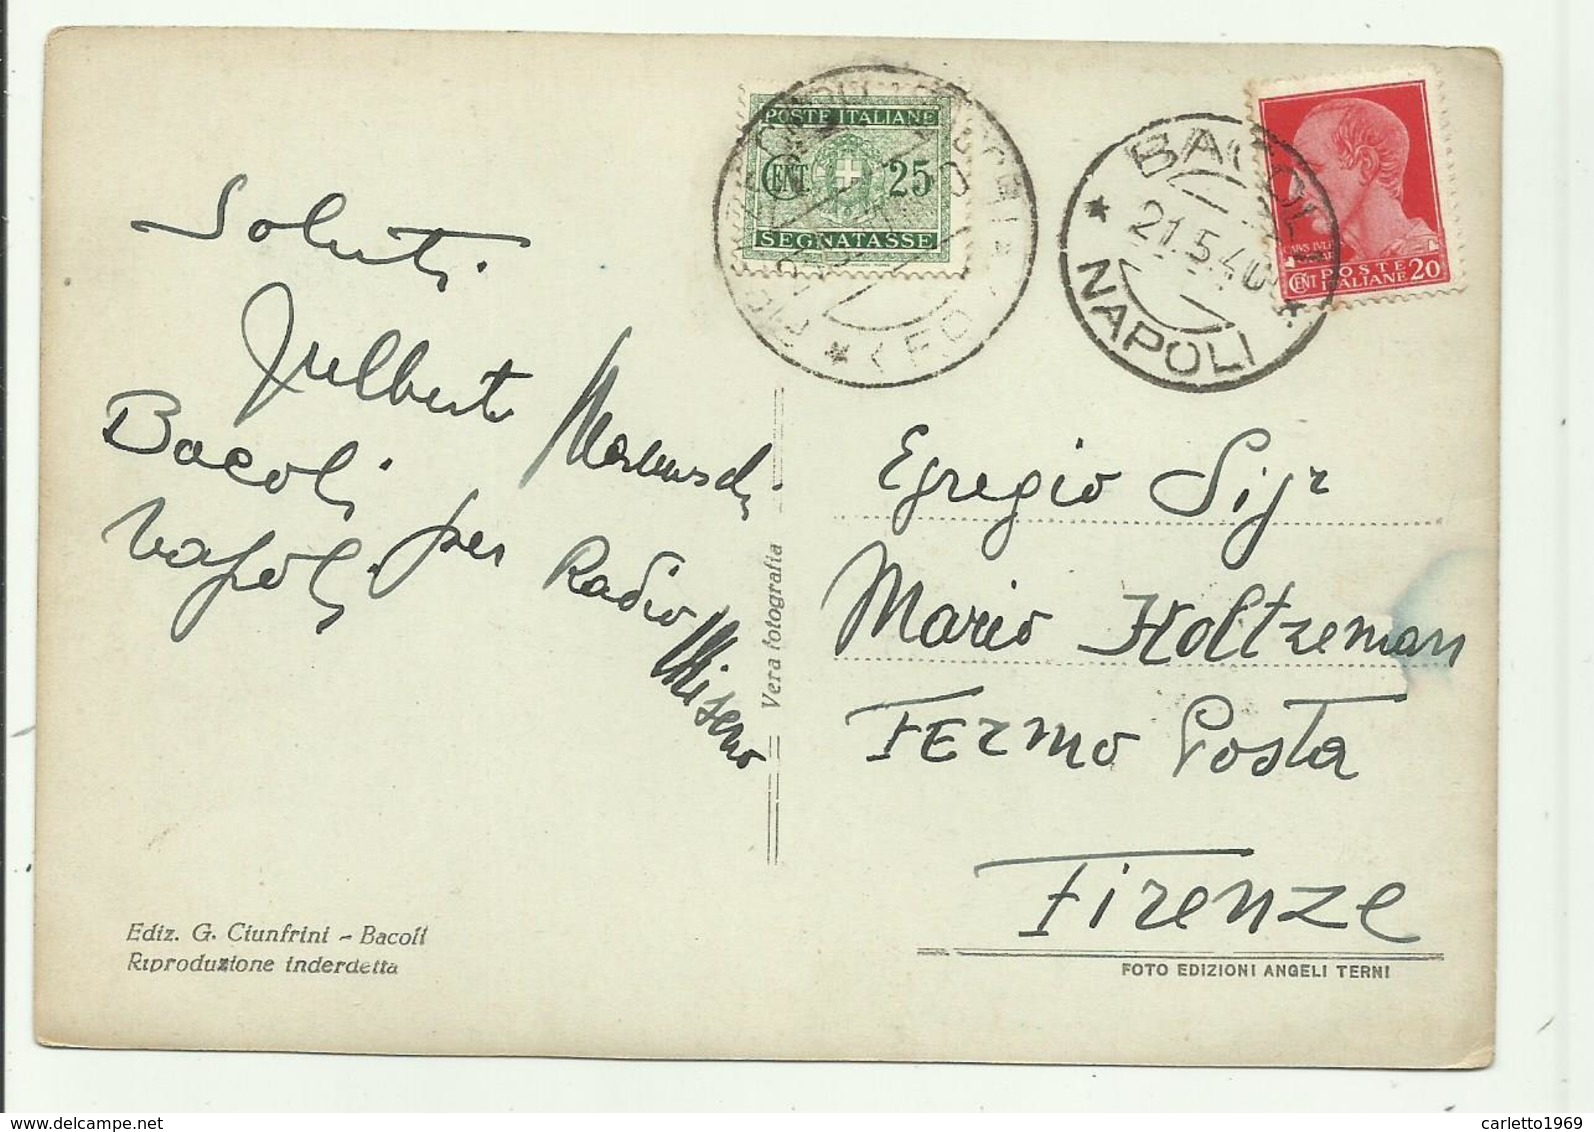 POSTE ITALIANE
CENT 25
SEGNATASSE
BACOLI
21.5.40
NAPOLI
POSTE
CENT ITALIANE 20
Saluti
Bacoli
Napoli per Radio
Miseno
Egregio Sigr
Mario Holtzeman
Fermo Posta
Firenze
Vera fotografia
Ediz. G. Ciunfrini - Bacoli
Riproduzione inderdetta
FOTO EDIZIONI ANGELI TERNI
www.delcampe.net
carletto1969